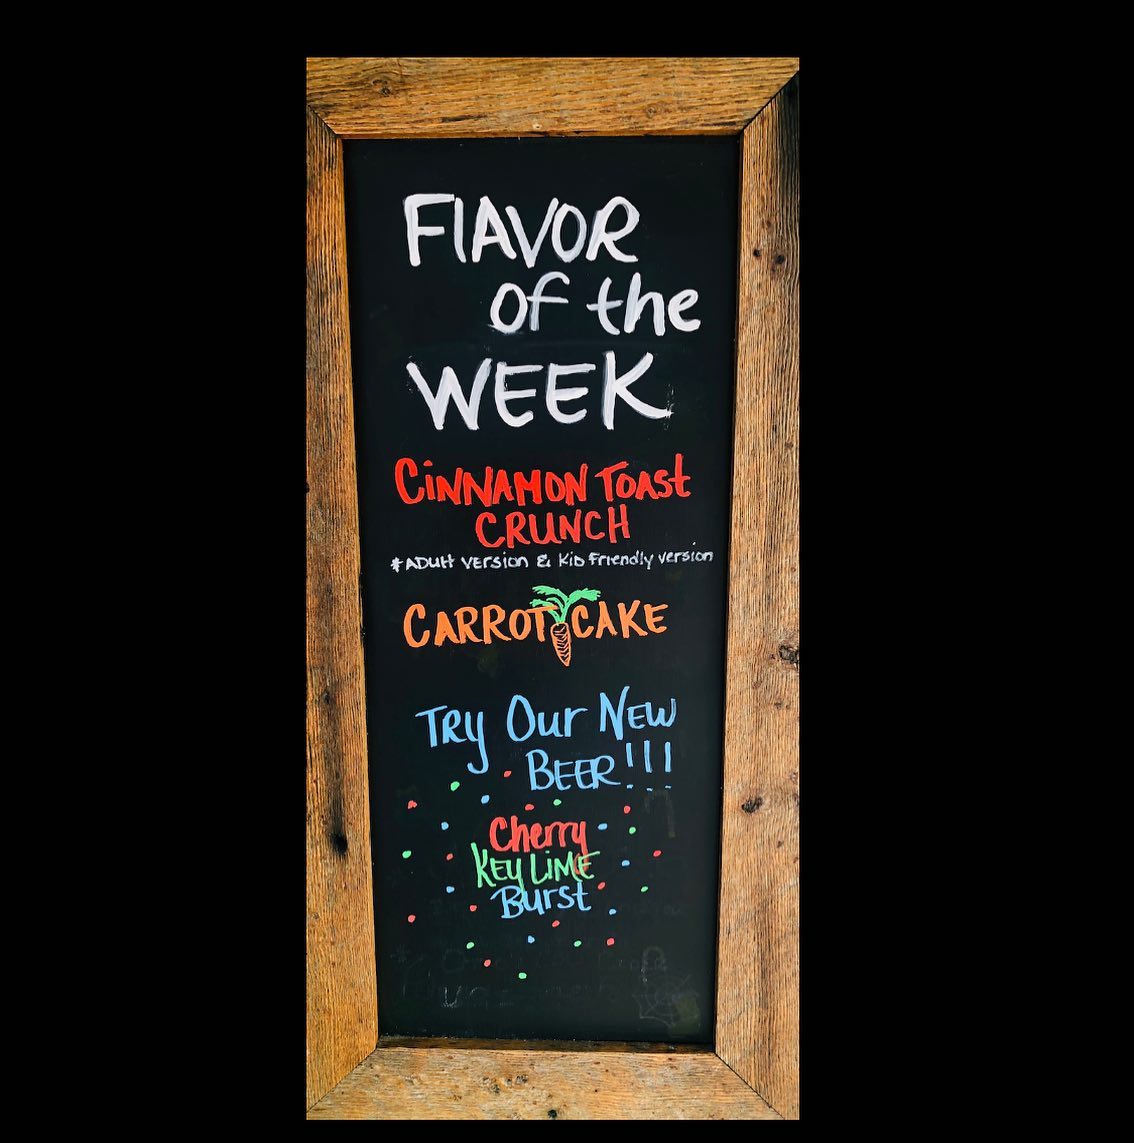 FlAVOR
of the
WEEK
CiNNAMON TOAst
CRUNCH
*ADUlt version & Kid Friendly version
CARROT CAKE
TRY Our NEW
BEER!!!
Cherry
KEy LiME
Burst